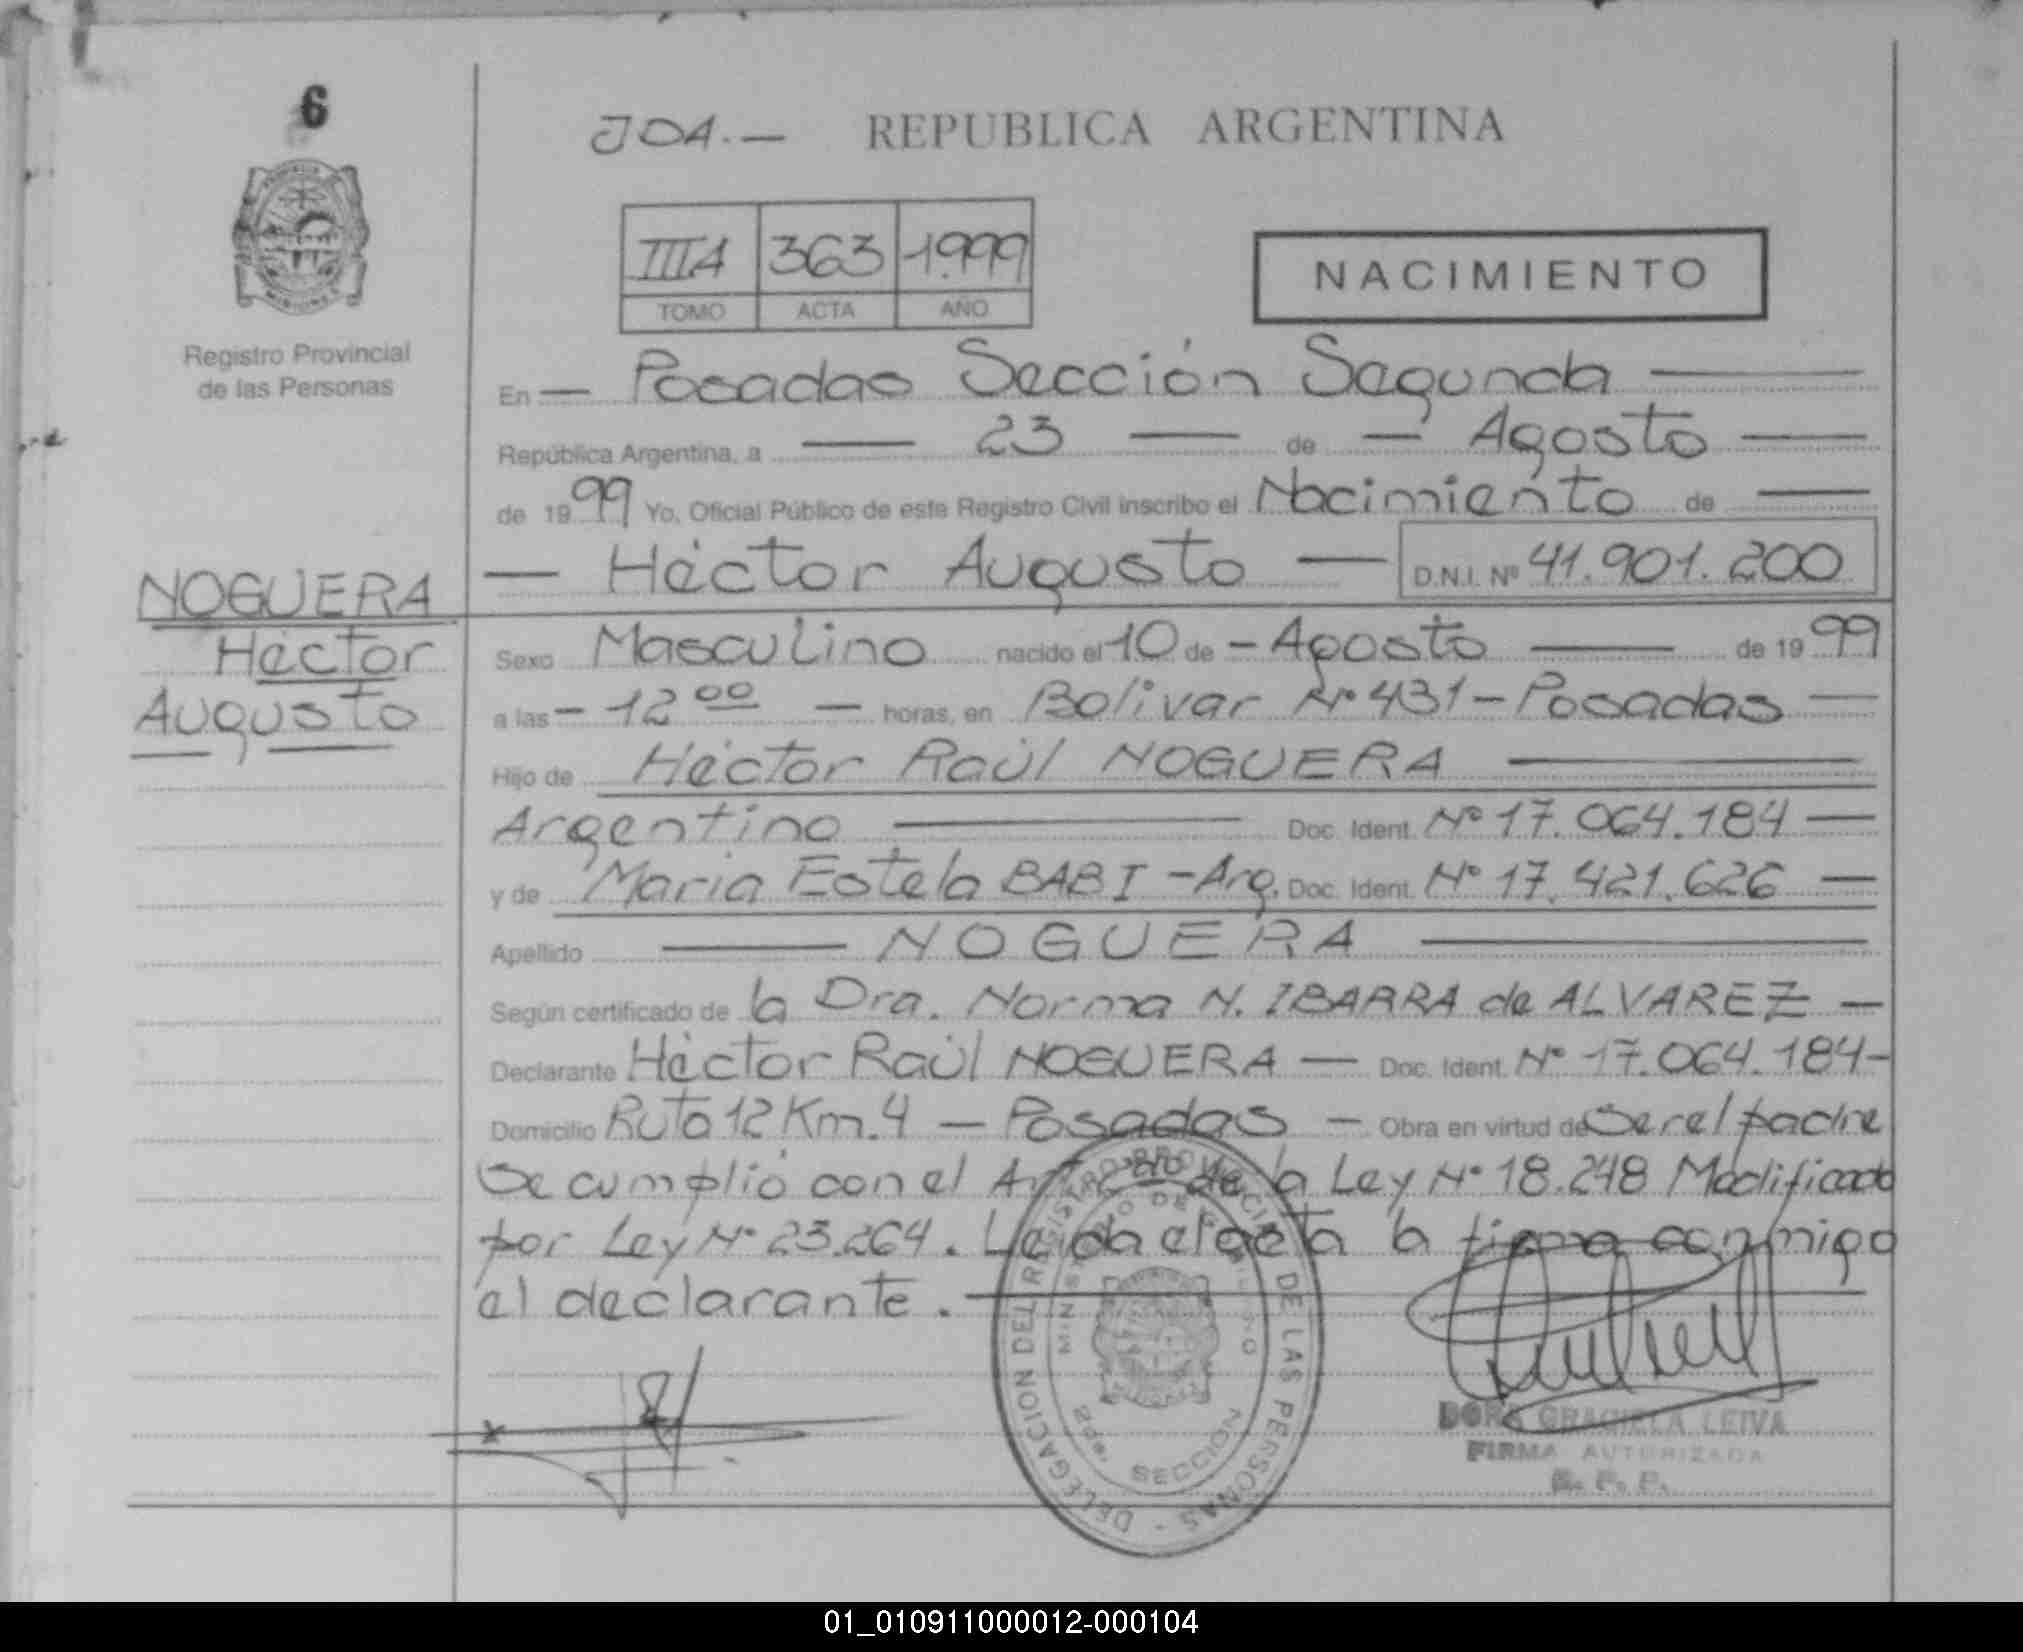 6
JOA.— REPUBLICA ARGENTINA
IIIA 363 1.999
TOMO ACTA AÑO
NACIMIENTO
Registro Provincial
de las Personas
En — Posadas Sección Segunda —
República Argentina, a — 23 — de — Agosto —
de 1999 Yo, Oficial Público de este Registro Civil inscribo el Nacimiento de —
— Héctor Augusto — D.N.I. Nº 41.901.200
NOGUERA
Héctor
Augusto
Sexo Masculino nacido el 10 de - Agosto — de 1999
a las - 12 00 — horas, en Bolivar Nº 431 - Posadas —
Hijo de Héctor Raúl NOGUERA —
Argentino — Doc. Ident. Nº 17.064.184 —
y de Maria Estela BABI - Arg. Doc. Ident. Nº 17.421.626 —
Apellido — NOGUERA —
Según certificado de la Dra. Norma N. IBARRA de ALVAREZ —
Declarante Héctor Raúl NOGUERA — Doc. Ident. Nº 17.064.184-
Domicilio Ruta 12 Km. 4 — Posadas — Obra en virtud de Ser el padre
Se cumplió con el Art. de la Ley Nº 18.248 Modificado
por Ley Nº 23.264. Leida el acta la firma conmigo
el declarante. —
DELEGACION DEL REGISTRO PROVINCIAL DE LAS PERSONAS -
MINISTERIO DE GOBIERNO
2da. SECCION
DORA GRACIELA LEIVA
FIRMA AUTORIZADA
R. P. P.
01_010911000012-000104